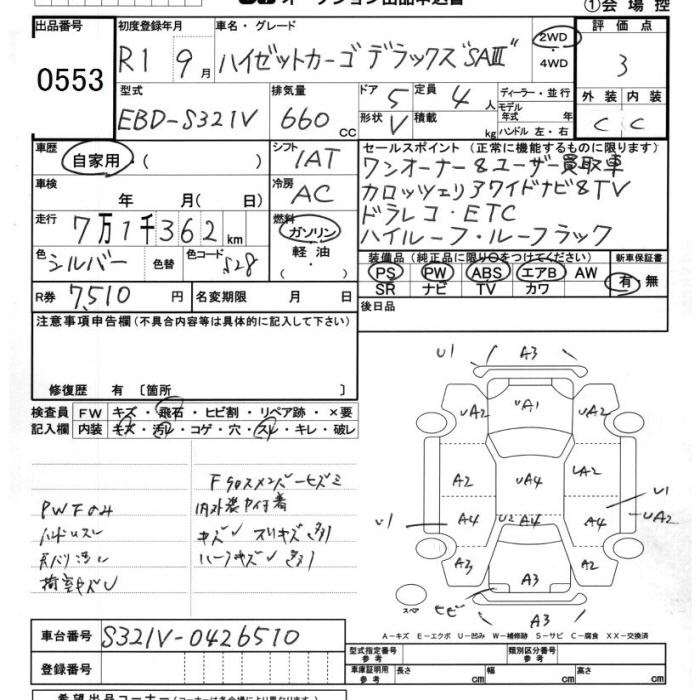 オークション出品申込書
①会場控
出品番号
0553
初度登録年月
R1 9月
車名・グレード
ハイゼットカーゴ デラックス"SAIII"
2WD
・4WD
評価点
3
型式
EBD-S321V
排気量
660 cc
ドア
5
定員
4人
形状
V
積載
kg
ディーラー・並行
モデル年式 年
ハンドル 左・右
外装 内装
C C
車歴
自家用・( )
シフト
IAT
セールスポイント(正常に機能するものに限ります)
ワンオーナー&ユーザー買取車
カロッツェリアワイドナビ&TV
ドラレコ・ETC
ハイルーフ・ルーフラック
車検
年 月( 日)
冷房
AC
走行
7万1千362km
燃料
ガソリン
軽油
・( )
色
シルバー
色替
色コード
S28
装備品(純正品に限り○をつけてください)
PS PW ABS エアB AW
SR ナビ TV カワ
新車保証書
有・無
R券
7,510円
名変期限 月 日
後日品
注意事項申告欄(不具合内容等は具体的に記入して下さい)
修復歴 有 〔箇所 〕
検査員記入欄
FW キズ・飛石・ヒビ割・リペア跡・×要
内装 キズ・汚レ・コゲ・穴・スレ・キレ・破レ
PWFのみ
内外装サビ付着
U1 A3
UA1
UA2 UA2
A2 UA4 UA2
U1
U1 A4 U2 A4 A4 UA2
A3 A3 A2
スペア ヒビ A3
A-キズ E-エクボ U-凹み W-補修跡 S-サビ C-腐食 XX-交換済
車台番号
S321V-0426510
登録番号
型式指定番号 参考
類別区分番号 参考
車庫証明用 参考 長さ cm 幅 cm 高さ cm
希望出品コーナー(コーナーは各会場により異なります)